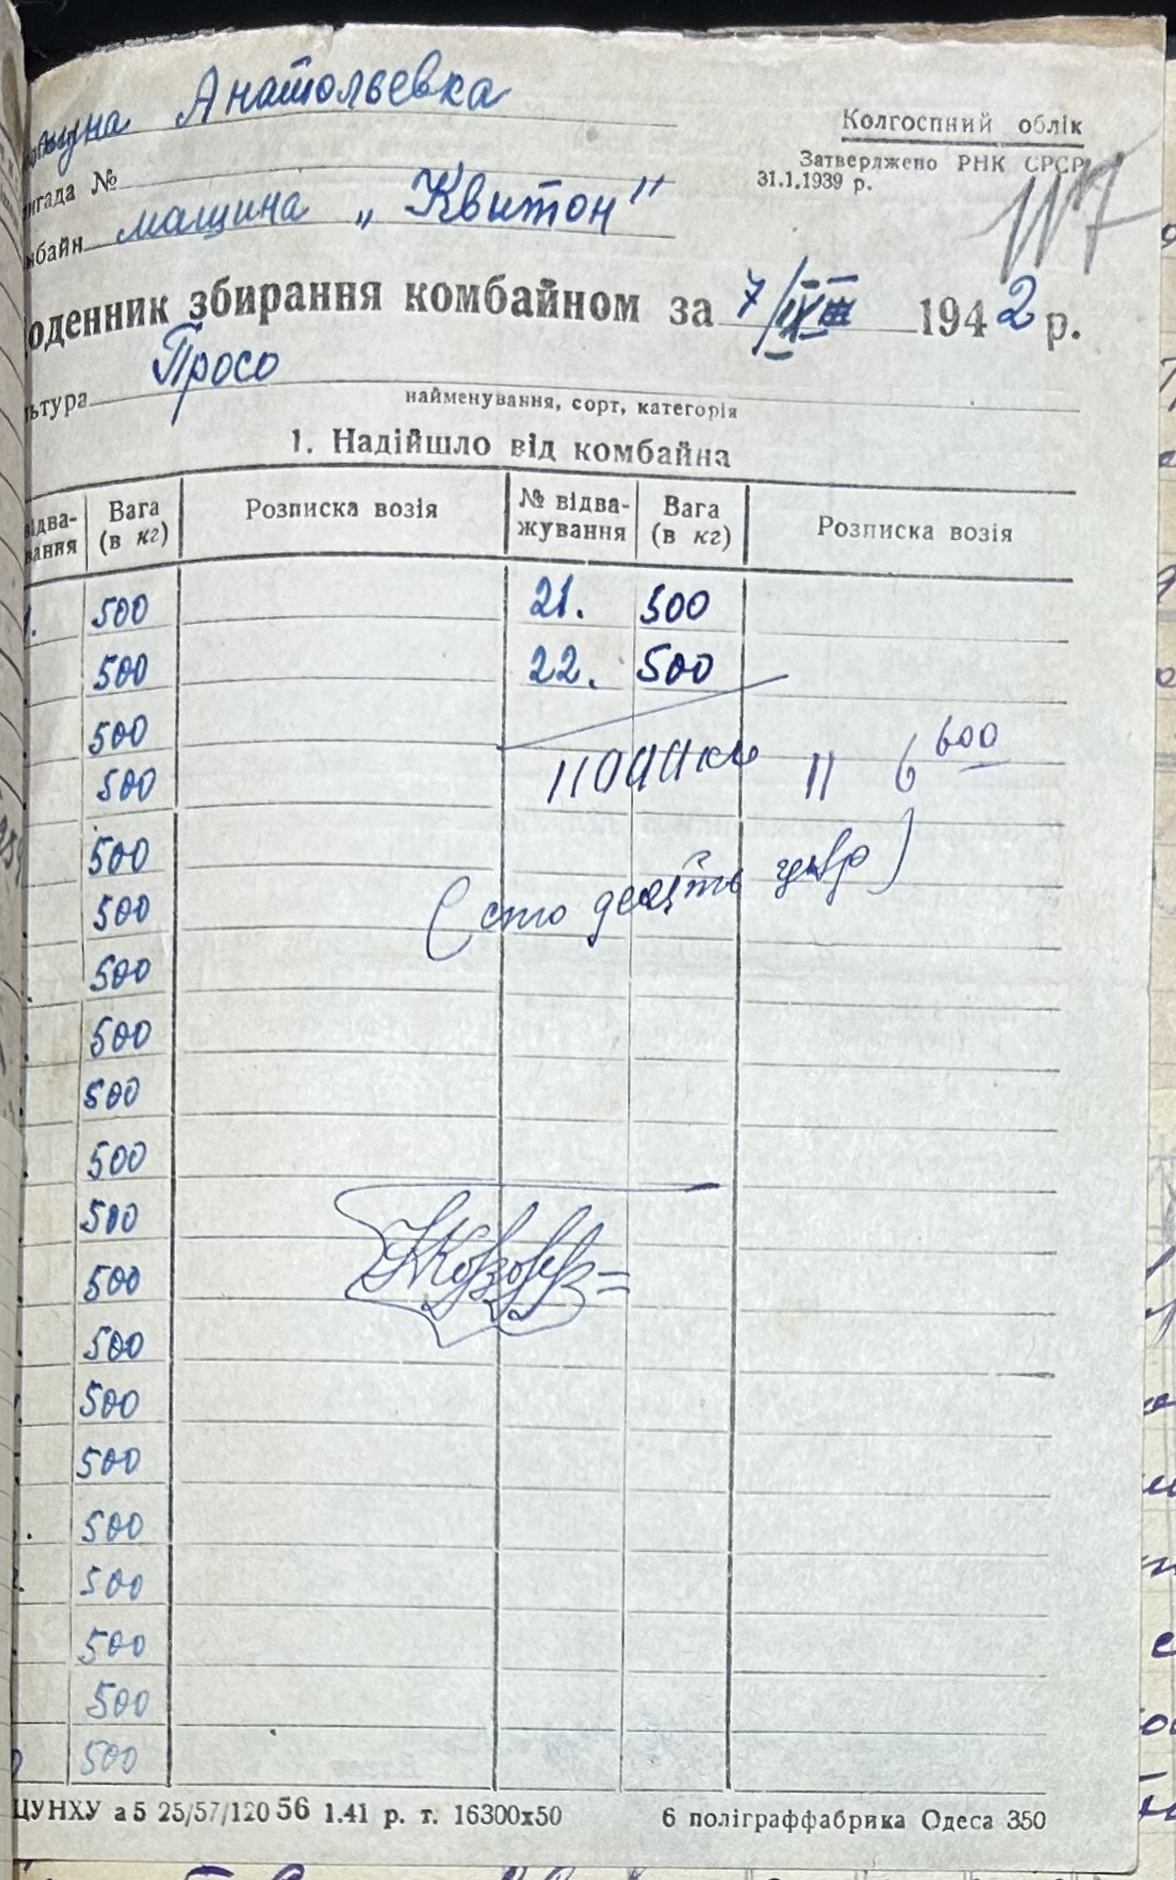 Анатольевка
Колгоспний облік
Затверджено РНК СРСР
31.1.1939 р.
117
игада №
мбайн машина „Квитон"
оденник збирання комбайном за 7/IX 1942 р.
льтура Просо
найменування, сорт, категорія
1. Надійшло від комбайна
відва-
вання
Вага
(в кг)
Розписка возія
№ відва-
жування
Вага
(в кг)
Розписка возія
1. 500 21. 500
500 22. 500
500
500 11000 кг // 6 600
500
500 (сто десять цнтр)
500
500
500
500
500
500
500
500
500
500
500
500
500
500
ЦУНХУ а5 25/57/120 56 1.41 р. т. 16300х50 6 поліграффабрика Одеса 350